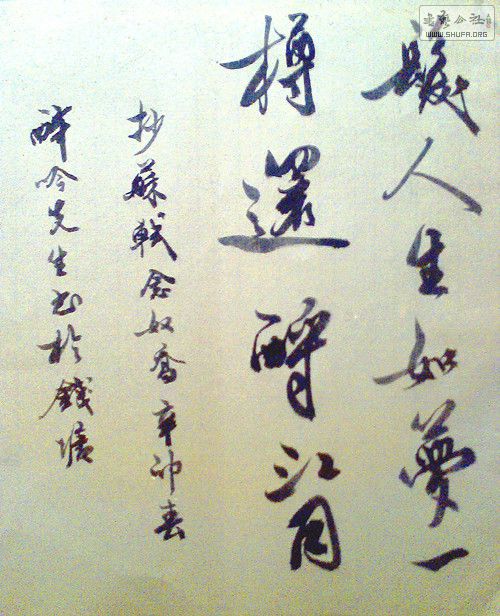 髮人生如夢一
樽還酹江月
抄蘇軾念奴喬辛卯春
醉吟先生书於錢塘
書藝公社
WWW.SHUFA.ORG